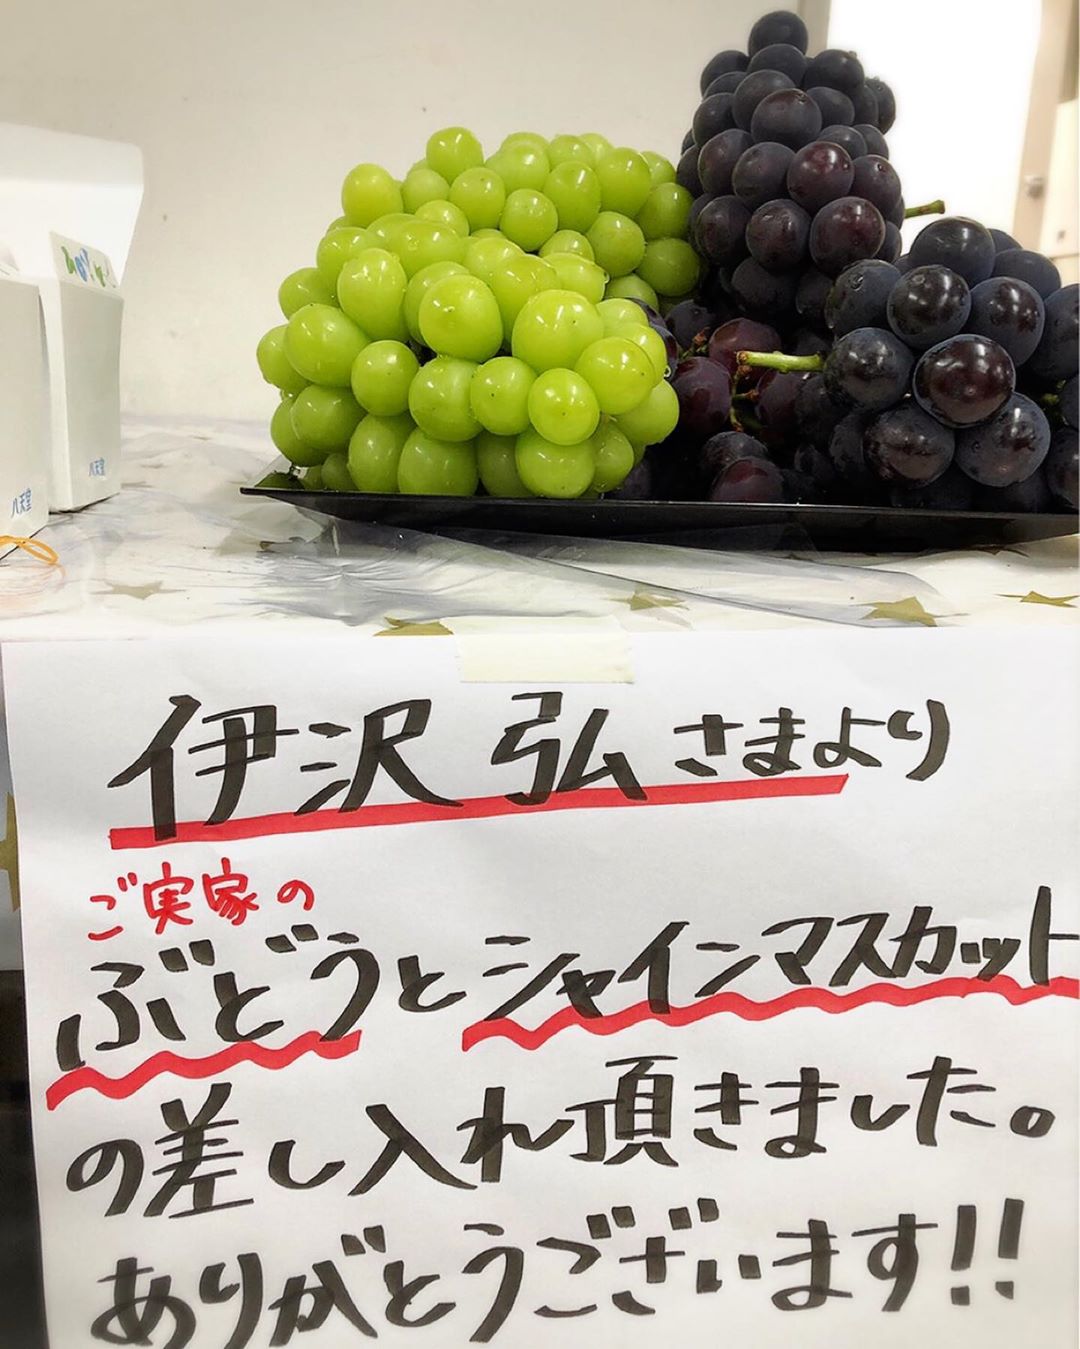 八天堂
八天堂
伊沢 弘 さまより
ご実家の
ぶどうとシャインマスカット
の差し入れ頂きました。
ありがとうございます!!